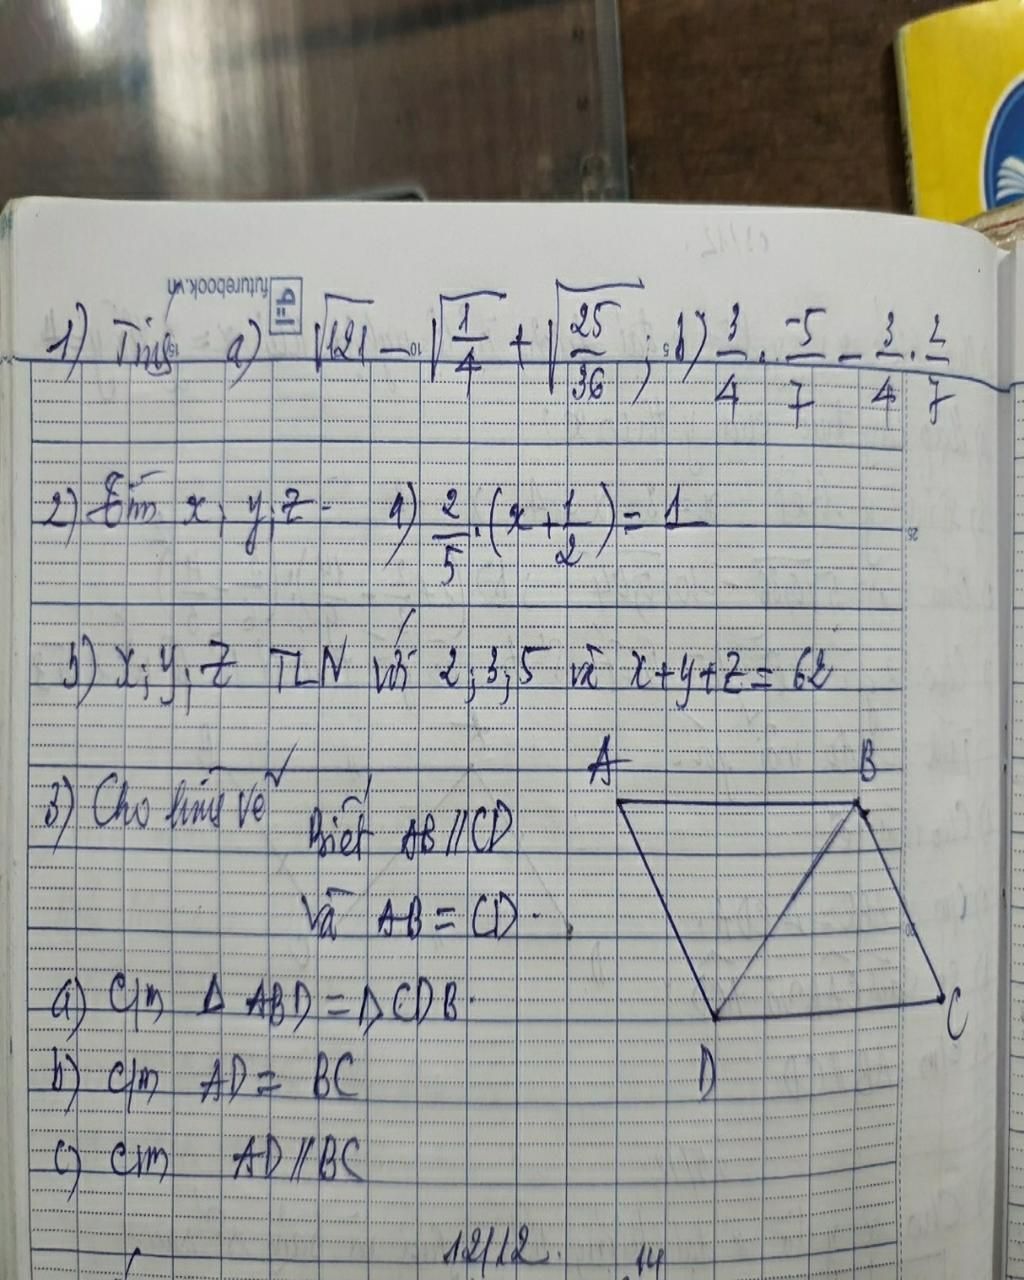 futurebook.vn
1) Tính a) √121 - √(1/4) + √(25/36) ; b) 3/4 . -5/7 - 3/4 . 2/7
2) Tìm x, y, z. a) 2/5 . (x + 1/2) = 1
b) x; y; z TLN với 2; 3; 5 và x + y + z = 62
3) Cho hình vẽ
Biết AB // CD
Và AB = CD.
A
B
C
D
a) C/m Δ ABD = Δ CDB.
b) C/m AD = BC
c) C/m AD // BC
12/12.
14